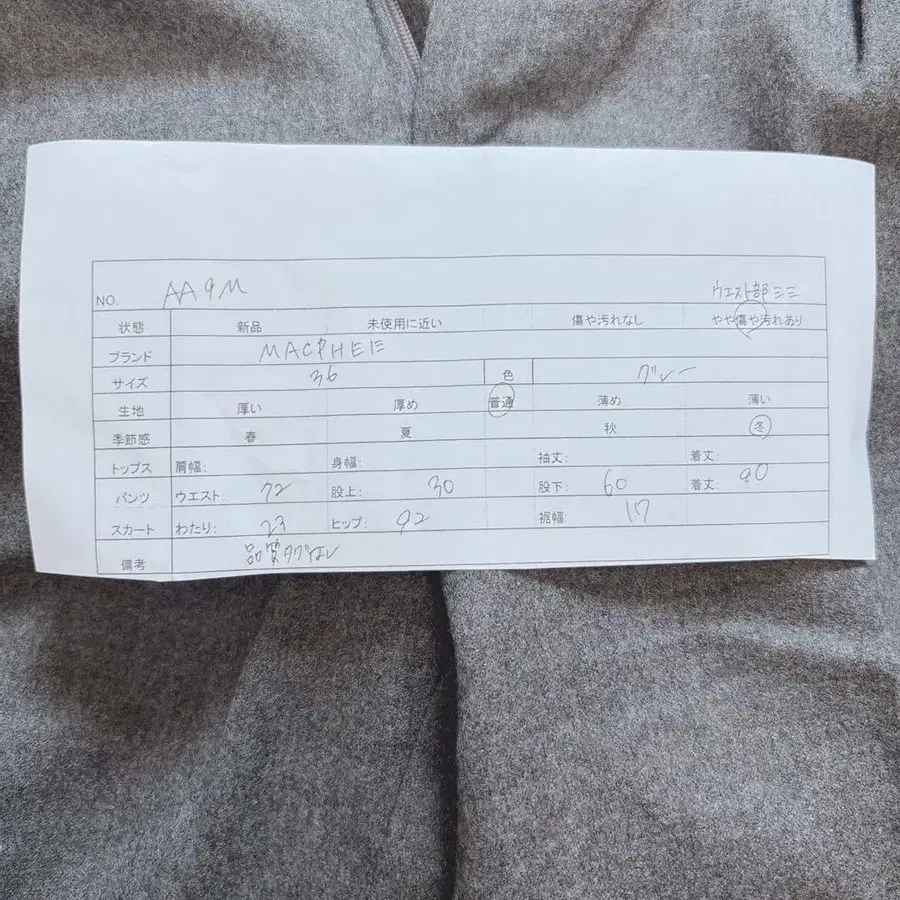 NO. AA9M ウエスト部ミミ
状態 新品 未使用に近い 傷や汚れなし やや傷や汚れあり
ブランド MACPHEE
サイズ 36 色 グレー
生地 厚い 厚め 普通 薄め 薄い
季節感 春 夏 秋 冬
トップス 肩幅: 身幅: 袖丈: 着丈:
パンツ ウエスト: 72 股上: 30 股下: 60 着丈: 90
スカート わたり: 23 ヒップ: 92 裾幅: 17
備考 品質タグなし